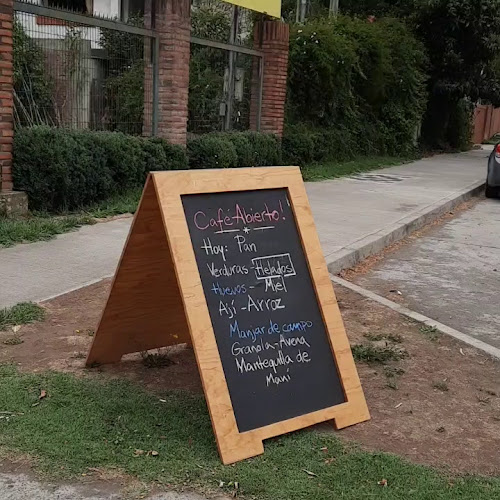 Café Abierto!
Hoy: Pan
Verduras - Helados
Huevos - Miel
Ají - Arroz
Manjar de campo
Granola - Avena
Mantequilla de
Maní